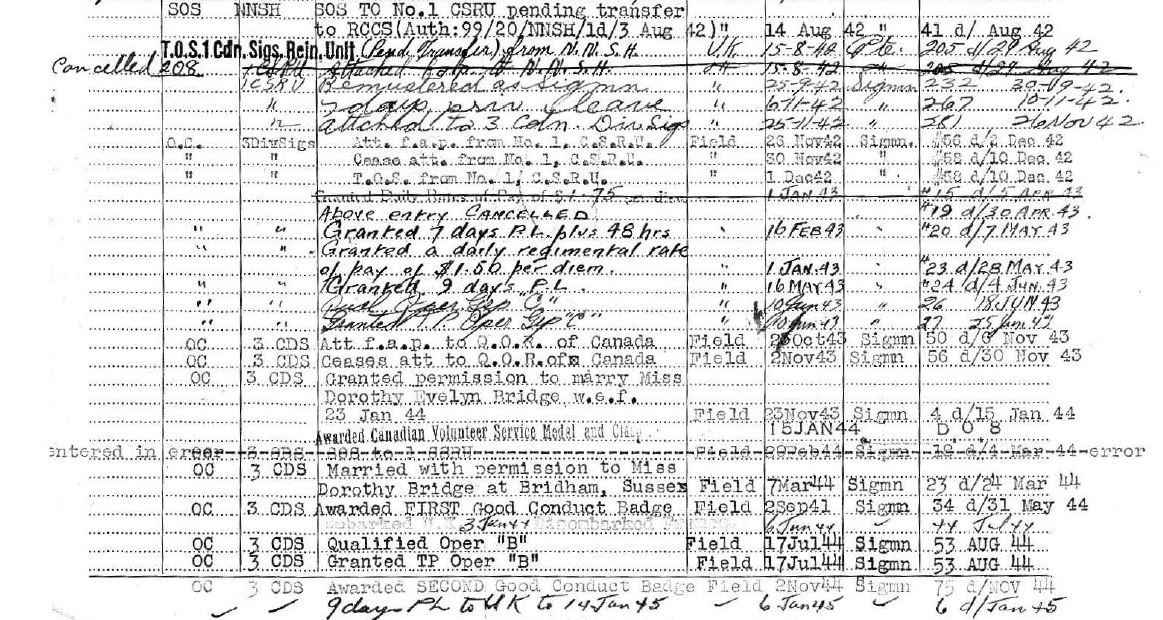 SOS NNSH SOS TO No.1 CSRU pending transfer
to RCCS(Auth:99/20/NNSH/1d/3 Aug 42)" 14 Aug 42 " 41 d/ Aug 42
T.O.S. 1 Cdn. Sigs. Rein. Unit (Pend. Transfer) from N.N.S.H. UK 15-8-42 Pte. 205 d/29 Aug 42
Cancelled 208 1 CSRU Attached N.N.S.H. 15-8-42 205 d/29 Aug 42
1CSRU Remustered as Sigmn " 25-9-42 Sigmn 232 30-09-42.
" 7 days priv leave " 6-11-42 " 267 10-11-42.
" attched to 3 Cdn. Div Sigs " 25-11-42 " 281 26 NOV 42.
O.C. 3DivSigs Att. f.a.p. from No. 1, C.S.R.U. Field 26 Nov42 Sigmn. #56 d/2 Dec 42
" " Cease att. from No. 1, C.S.R.U. " 30 Nov42 " #58 d/10 Dec 42
" " T.O.S. from No. 1, C.S.R.U. " 1 Dec42 " #58 d/10 Dec 42
Granted Daily Rates of Pay of $1.75 per diem 1 JAN 43 " #15 d/5 APR 43
Above entry CANCELLED " #19 d/30 APR 43.
" " Granted 7 days P.L. plus 48 hrs " 16 FEB 43 " #20 d/7 MAY 43
" " Granted a daily regimental rate
of pay of $1.50 per diem. " 1 JAN. 43 " #23 d/28 MAY 43
" " Granted 9 days P.L. " 16 MAY 43 " #24 d/4 JUN. 43
" " Qual Oper Grp "C" " 10 Jun 43 " 26 18 JUN 43
" " Granted T.P. Oper Grp "C" " 10 Jun 43 " 27 25 Jun 43
OC 3 CDS Att f.a.p. to Q.O.R. of Canada Field Oct43 Sigmn 50 d/6 Nov 43
OC 3 CDS Ceases att to Q.O.R.of Canada Field 2Nov43 Sigmn 56 d/30 Nov 43
OC 3 CDS Granted permission to marry Miss
Dorothy Evelyn Bridge w.e.f.
23 Jan 44 Field 23Nov43 Sigmn 4 d/15 Jan 44
Awarded Canadian Volunteer Service Medal and Clasp 15JAN44 D O 8
entered in error OC 3 CDS SOS to 1 CSRU Field 29Feb44 Sigmn 18 d/4 Mar 44-error
OC 3 CDS Married with permission to Miss
Dorothy Bridge at Bridham, Sussex Field 7Mar44 Sigmn 23 d/24 Mar 44
OC 3 CDS Awarded FIRST Good Conduct Badge Field 2Sep41 Sigmn 34 d/31 May 44
Embarked U.K. 3 Jun 44 Disembarked 6 Jun 44 44 Jul 44
OC 3 CDS Qualified Oper "B" Field 17Jul44 Sigmn 53 AUG 44
OC 3 CDS Granted TP Oper "B" Field 17Jul44 Sigmn 53 AUG 44
OC 3 CDS Awarded SECOND Good Conduct Badge Field 2Nov44 Sigmn 75 d/NOV 44
9 days PL to UK to 14 Jan 45 6 Jan 45 6 d/Jan 45